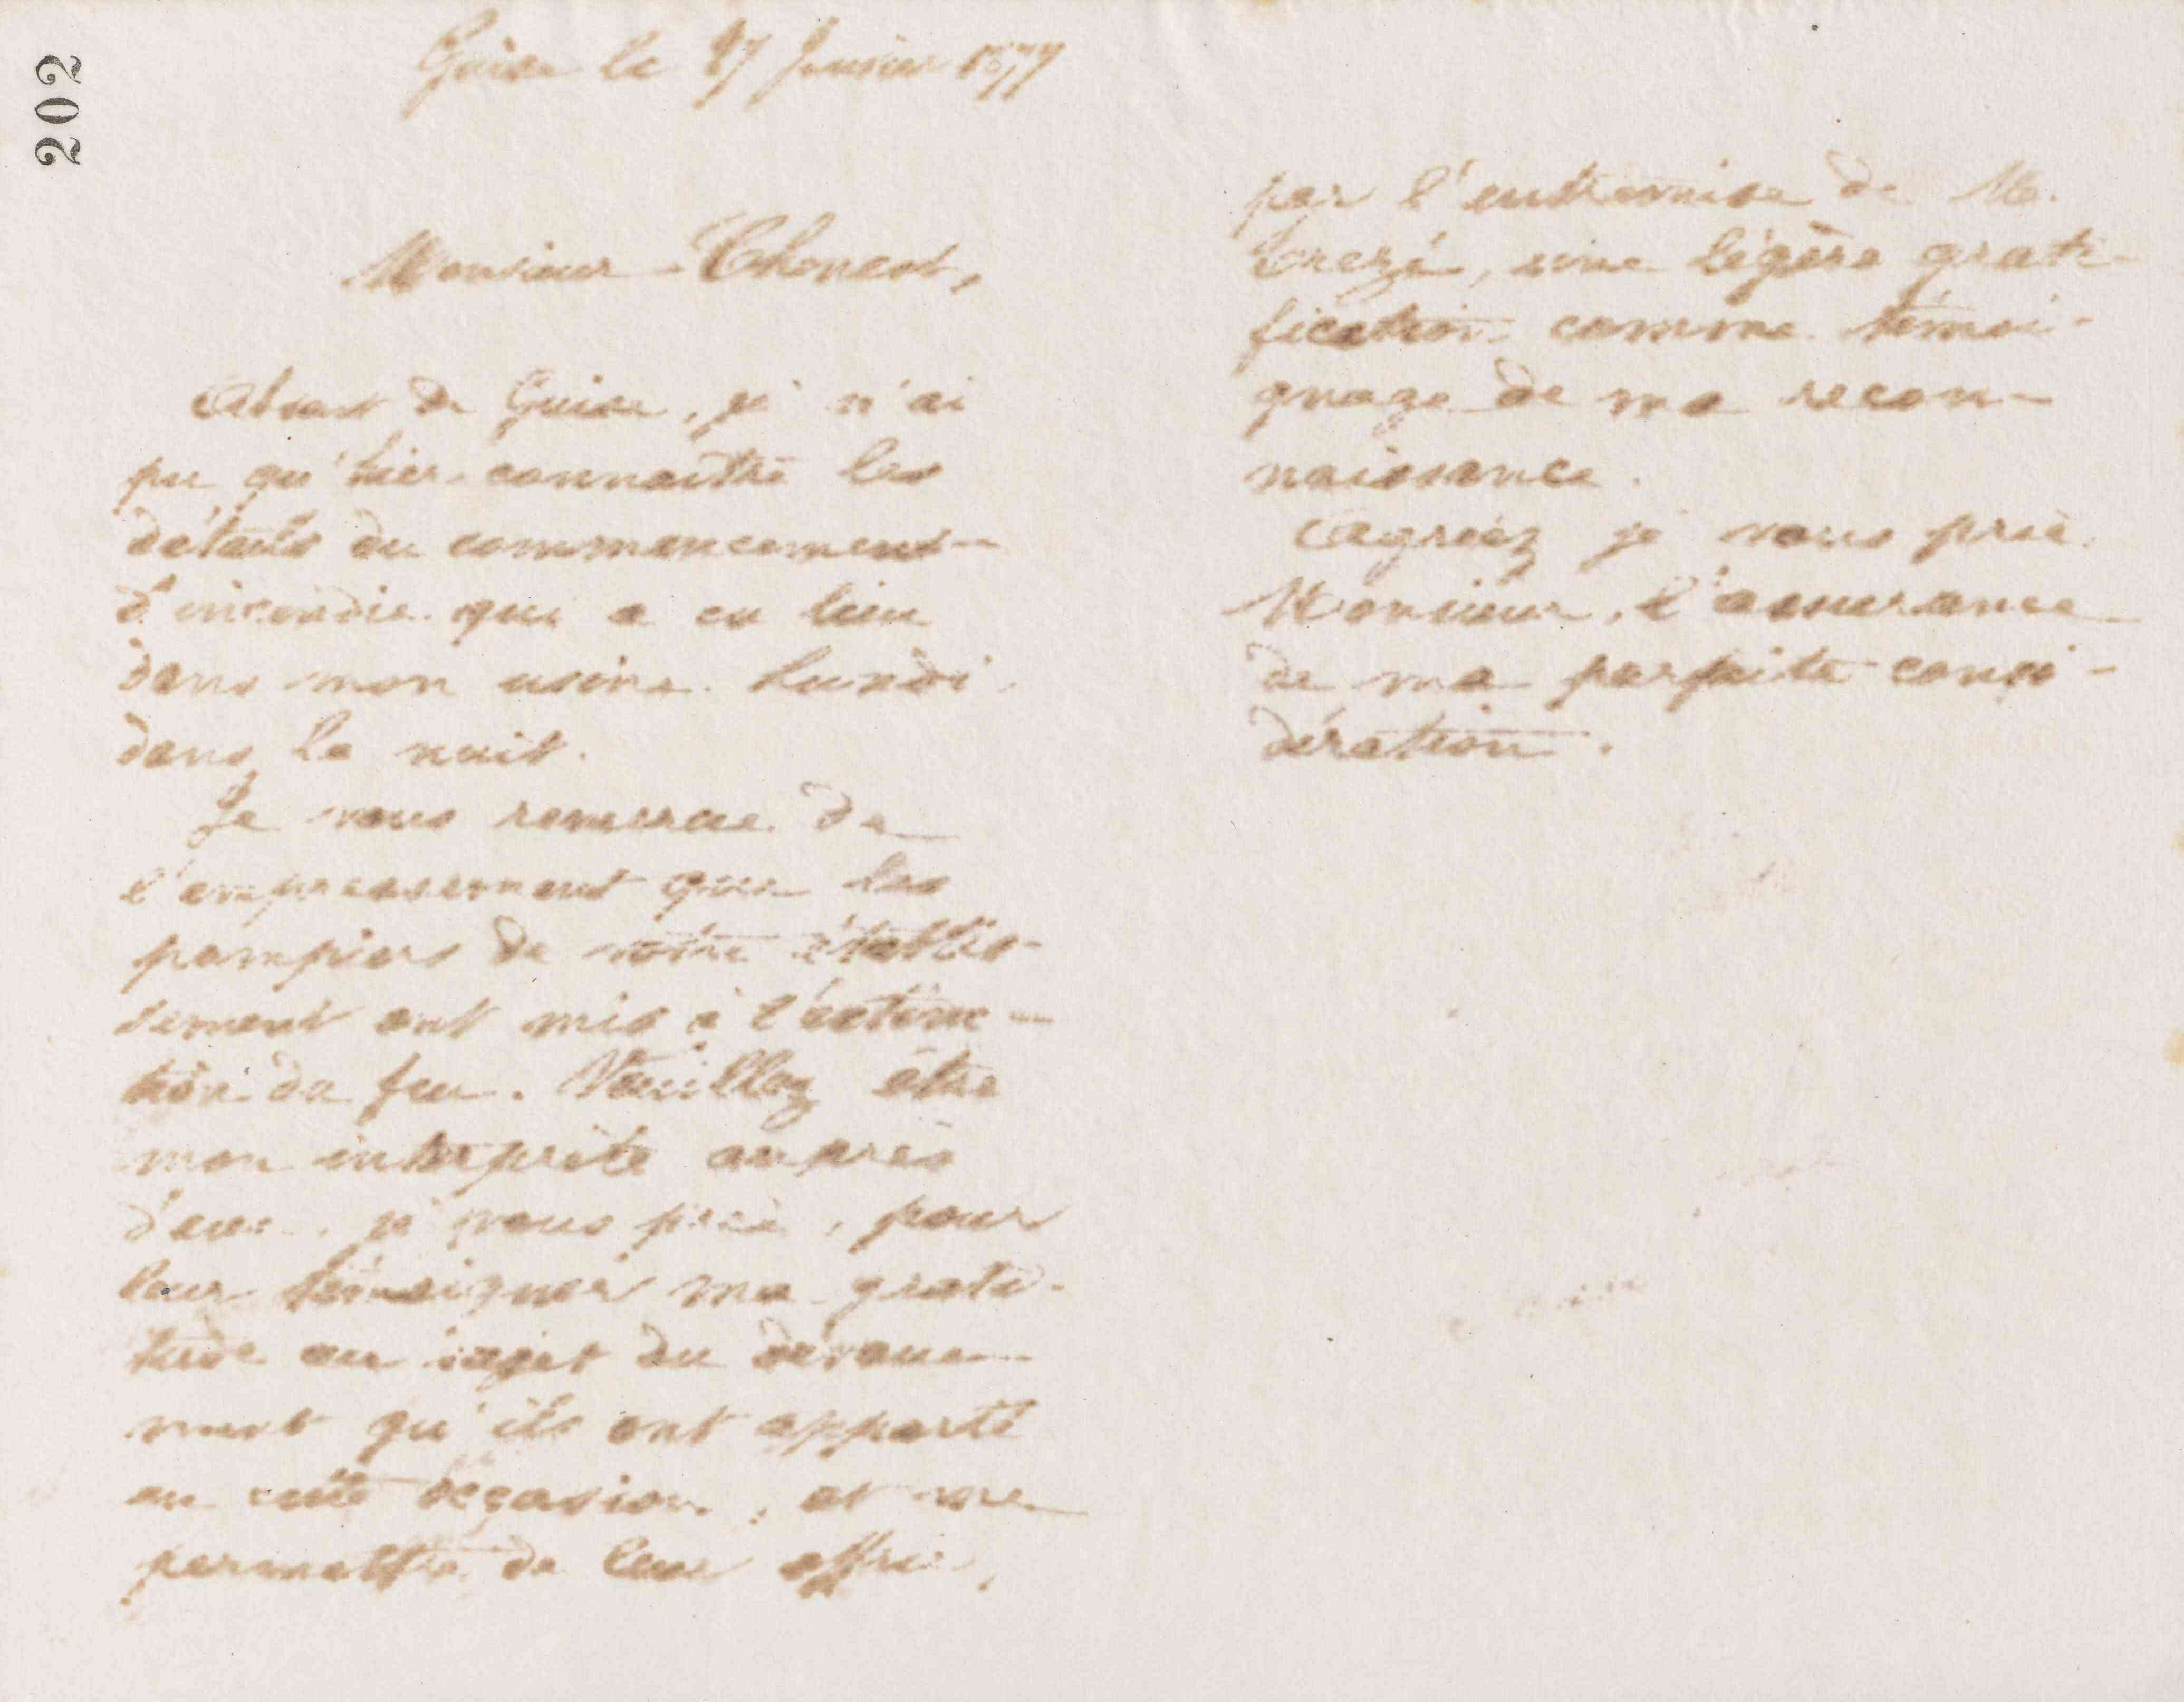 202
Guise le 17 Janvier 1877
Monsieur
Absent de Guise, je n'ai
pu qu'hier connaître les
détails du commencement
d'incendie qui a eu lieu
dans mon usine lundi
dans la nuit.
Je vous remercie de
l'empressement que les
pompiers de votre établis-
sement ont mis à l'extinc-
tion du feu. Veuillez être
mon interprète auprès
d'eux, je vous prie, pour
leur témoigner ma grati-
tude au sujet du dévoue-
ment qu'ils ont apporté
en cette occasion, et me
permettre de leur offrir,
par l'entremise de M.
une légère grati-
fication comme témoi-
gnage de ma recon-
naissance.
Agréez je vous prie,
Monsieur, l'assurance
de ma parfaite consi-
dération.